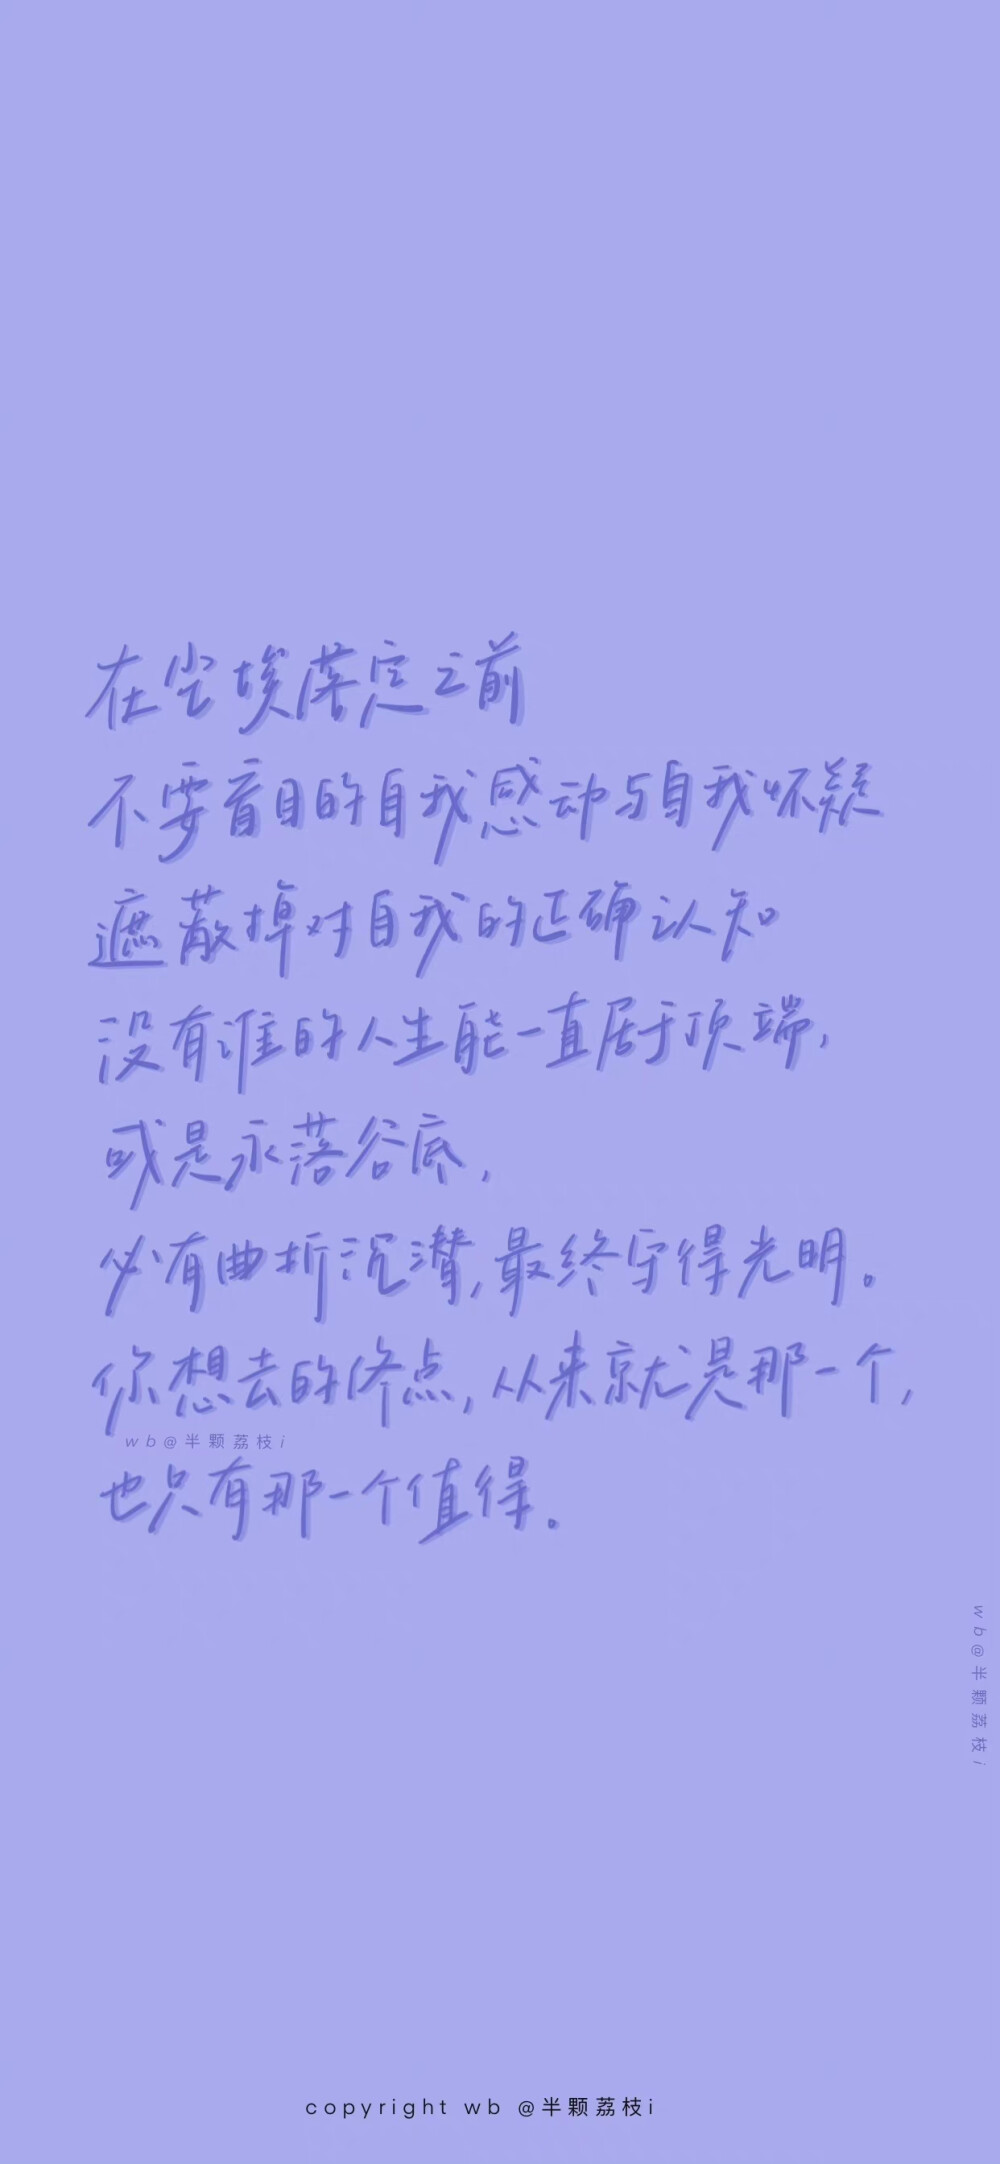 在尘埃落定之前
不要盲目的自我感动与自我怀疑
遮蔽掉对自我的正确认知
没有谁的人生能一直居于顶端,
或是永落谷底,
必有曲折沉潜,最终守得光明。
你想去的终点,从来就是那一个,
wb@半颗荔枝i
也只有那一个值得。
wb@半颗荔枝i
copyright wb @半颗荔枝i